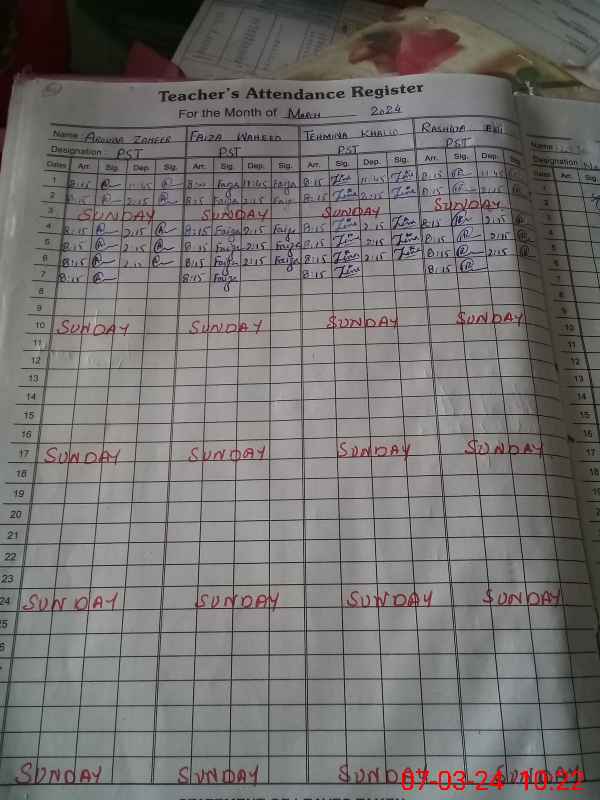 Teacher's Attendance Register
For the Month of March 2024
Name: Arooba Zaheer Faiza Waheed Tehmina Khalid Rashida Bibi Name:
Designation: PST PST PST PST Designation
Dates Arr. Sig. Dep. Sig. Arr. Sig. Dep. Sig. Arr. Sig. Dep. Sig. Arr. Sig. Dep. Sig. Dates Arr. Sig.
1 8:15 11:45 Faiza 11:45 Faiza 8:15 11:45 8:15 11:45 1
2 8:15 2:15 8:15 Faiza 2:15 Faiza 8:15 2:15 8:15 2:15 2
3 SUNDAY SUNDAY SUNDAY SUNDAY 3
4 8:15 2:15 8:15 Faiza 2:15 Faiza 8:15 2:15 8:15 2:15 4
5 8:15 2:15 8:15 Faiza 2:15 Faiza 8:15 2:15 8:15 2:15 5
6 8:15 8:15 Faiza 2:15 Faiza 8:15 2:15 8:15 2:15 6
7 8:15 8:15 Faiza 8:15 8:15 7
8 8
9 9
10 SUNDAY SUNDAY SUNDAY SUNDAY 10
11 11
12 12
13 13
14 14
15 15
16 16
17 SUNDAY SUNDAY SUNDAY SUNDAY 17
18 18
19 19
20 20
21
22
23
24 SUNDAY SUNDAY SUNDAY SUNDAY
25
SUNDAY SUNDAY SUNDAY SUNDAY
07-03-24 10:22